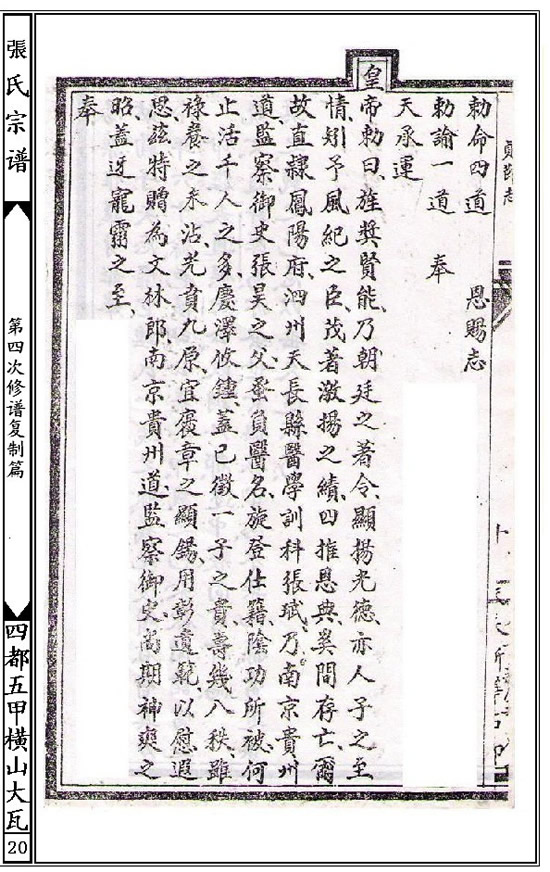 張氏宗谱
第四次修谱复制篇
四都五甲橫山大瓦
20
勅命四道 恩賜志
勅諭一道 奉
天承運
皇
帝勅曰、旌奨賢能、乃朝廷之著令、顯揚光德、亦人子之至
情、矧予風紀之臣、茂著激揚之績、四推恩典、奚間存亡、爾
故直隷鳳陽府、泗州天長縣醫學訓科張珷、乃南京貴州
道監察御史張昊之父、蚤負醫名、旋登仕籍、陰功所被、何
止活千人之多、慶澤攸鍾、蓋已徵一子之貴、壽幾八秩、雖
祿養之未沾、光賁九原、宜褒章之顯錫、用彰遺範、以慰遐
思、玆特贈為文林郎、南京貴州道監察御史、尚期神爽之
昭、蓋迓寵霱之至、
奉